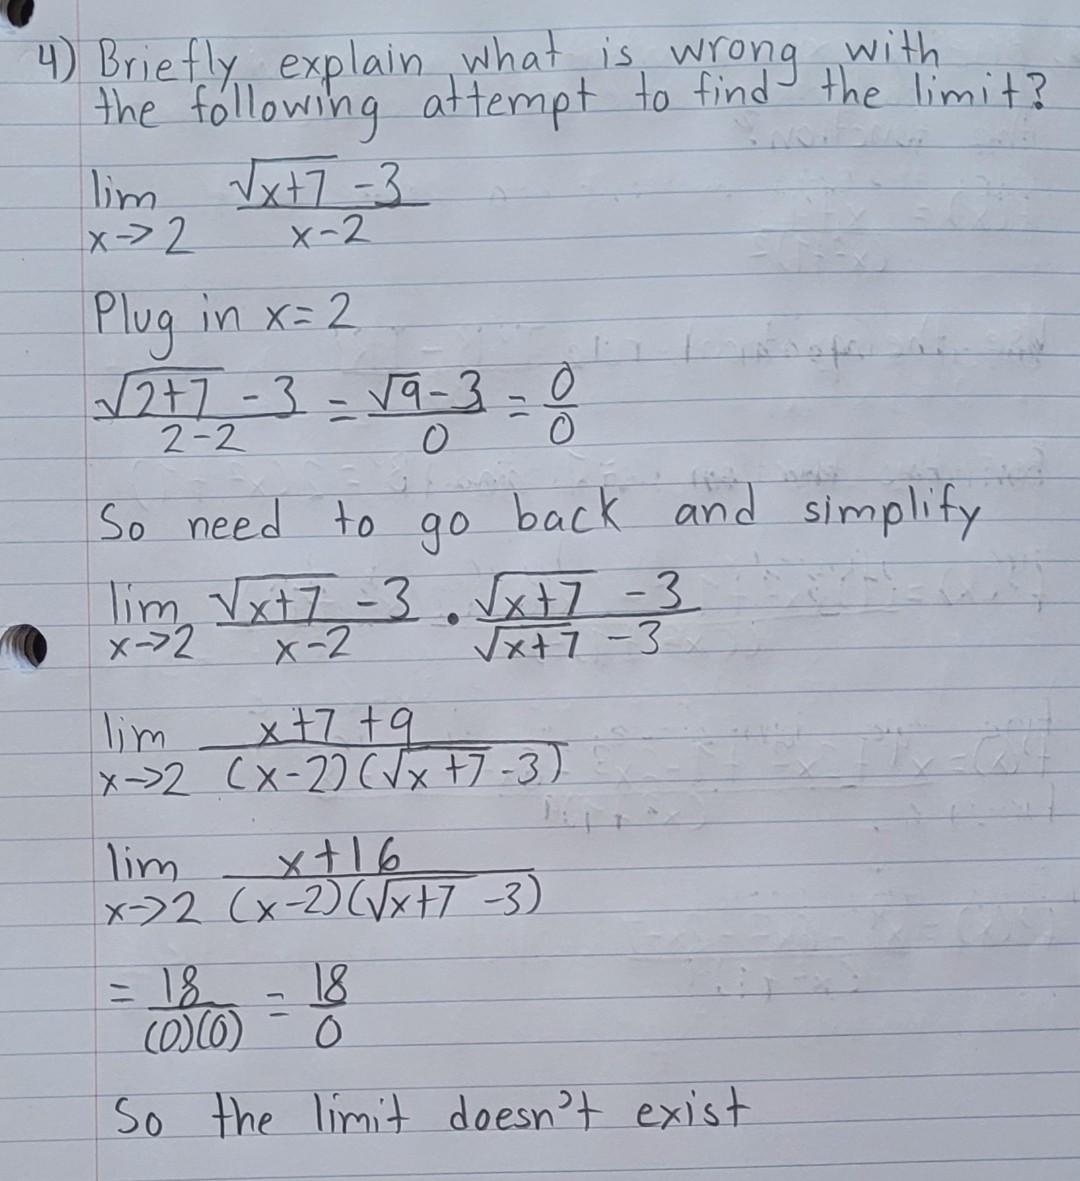 4) Briefly explain what is wrong with
the following attempt to find the limit?
lim √x+7 -3
x→2 x-2
Plug in x=2
√2+7 - 3 = √9-3 = 0
2-2 0 0
So need to go back and simplify
lim √x+7 -3 · √x+7 -3
x→2 x-2 √x+7 -3
lim x+7+9
x→2 (x-2)(√x+7 -3)
lim x+16
x→2 (x-2)(√x+7 -3)
= 18 = 18
(0)(0) 0
So the limit doesn't exist